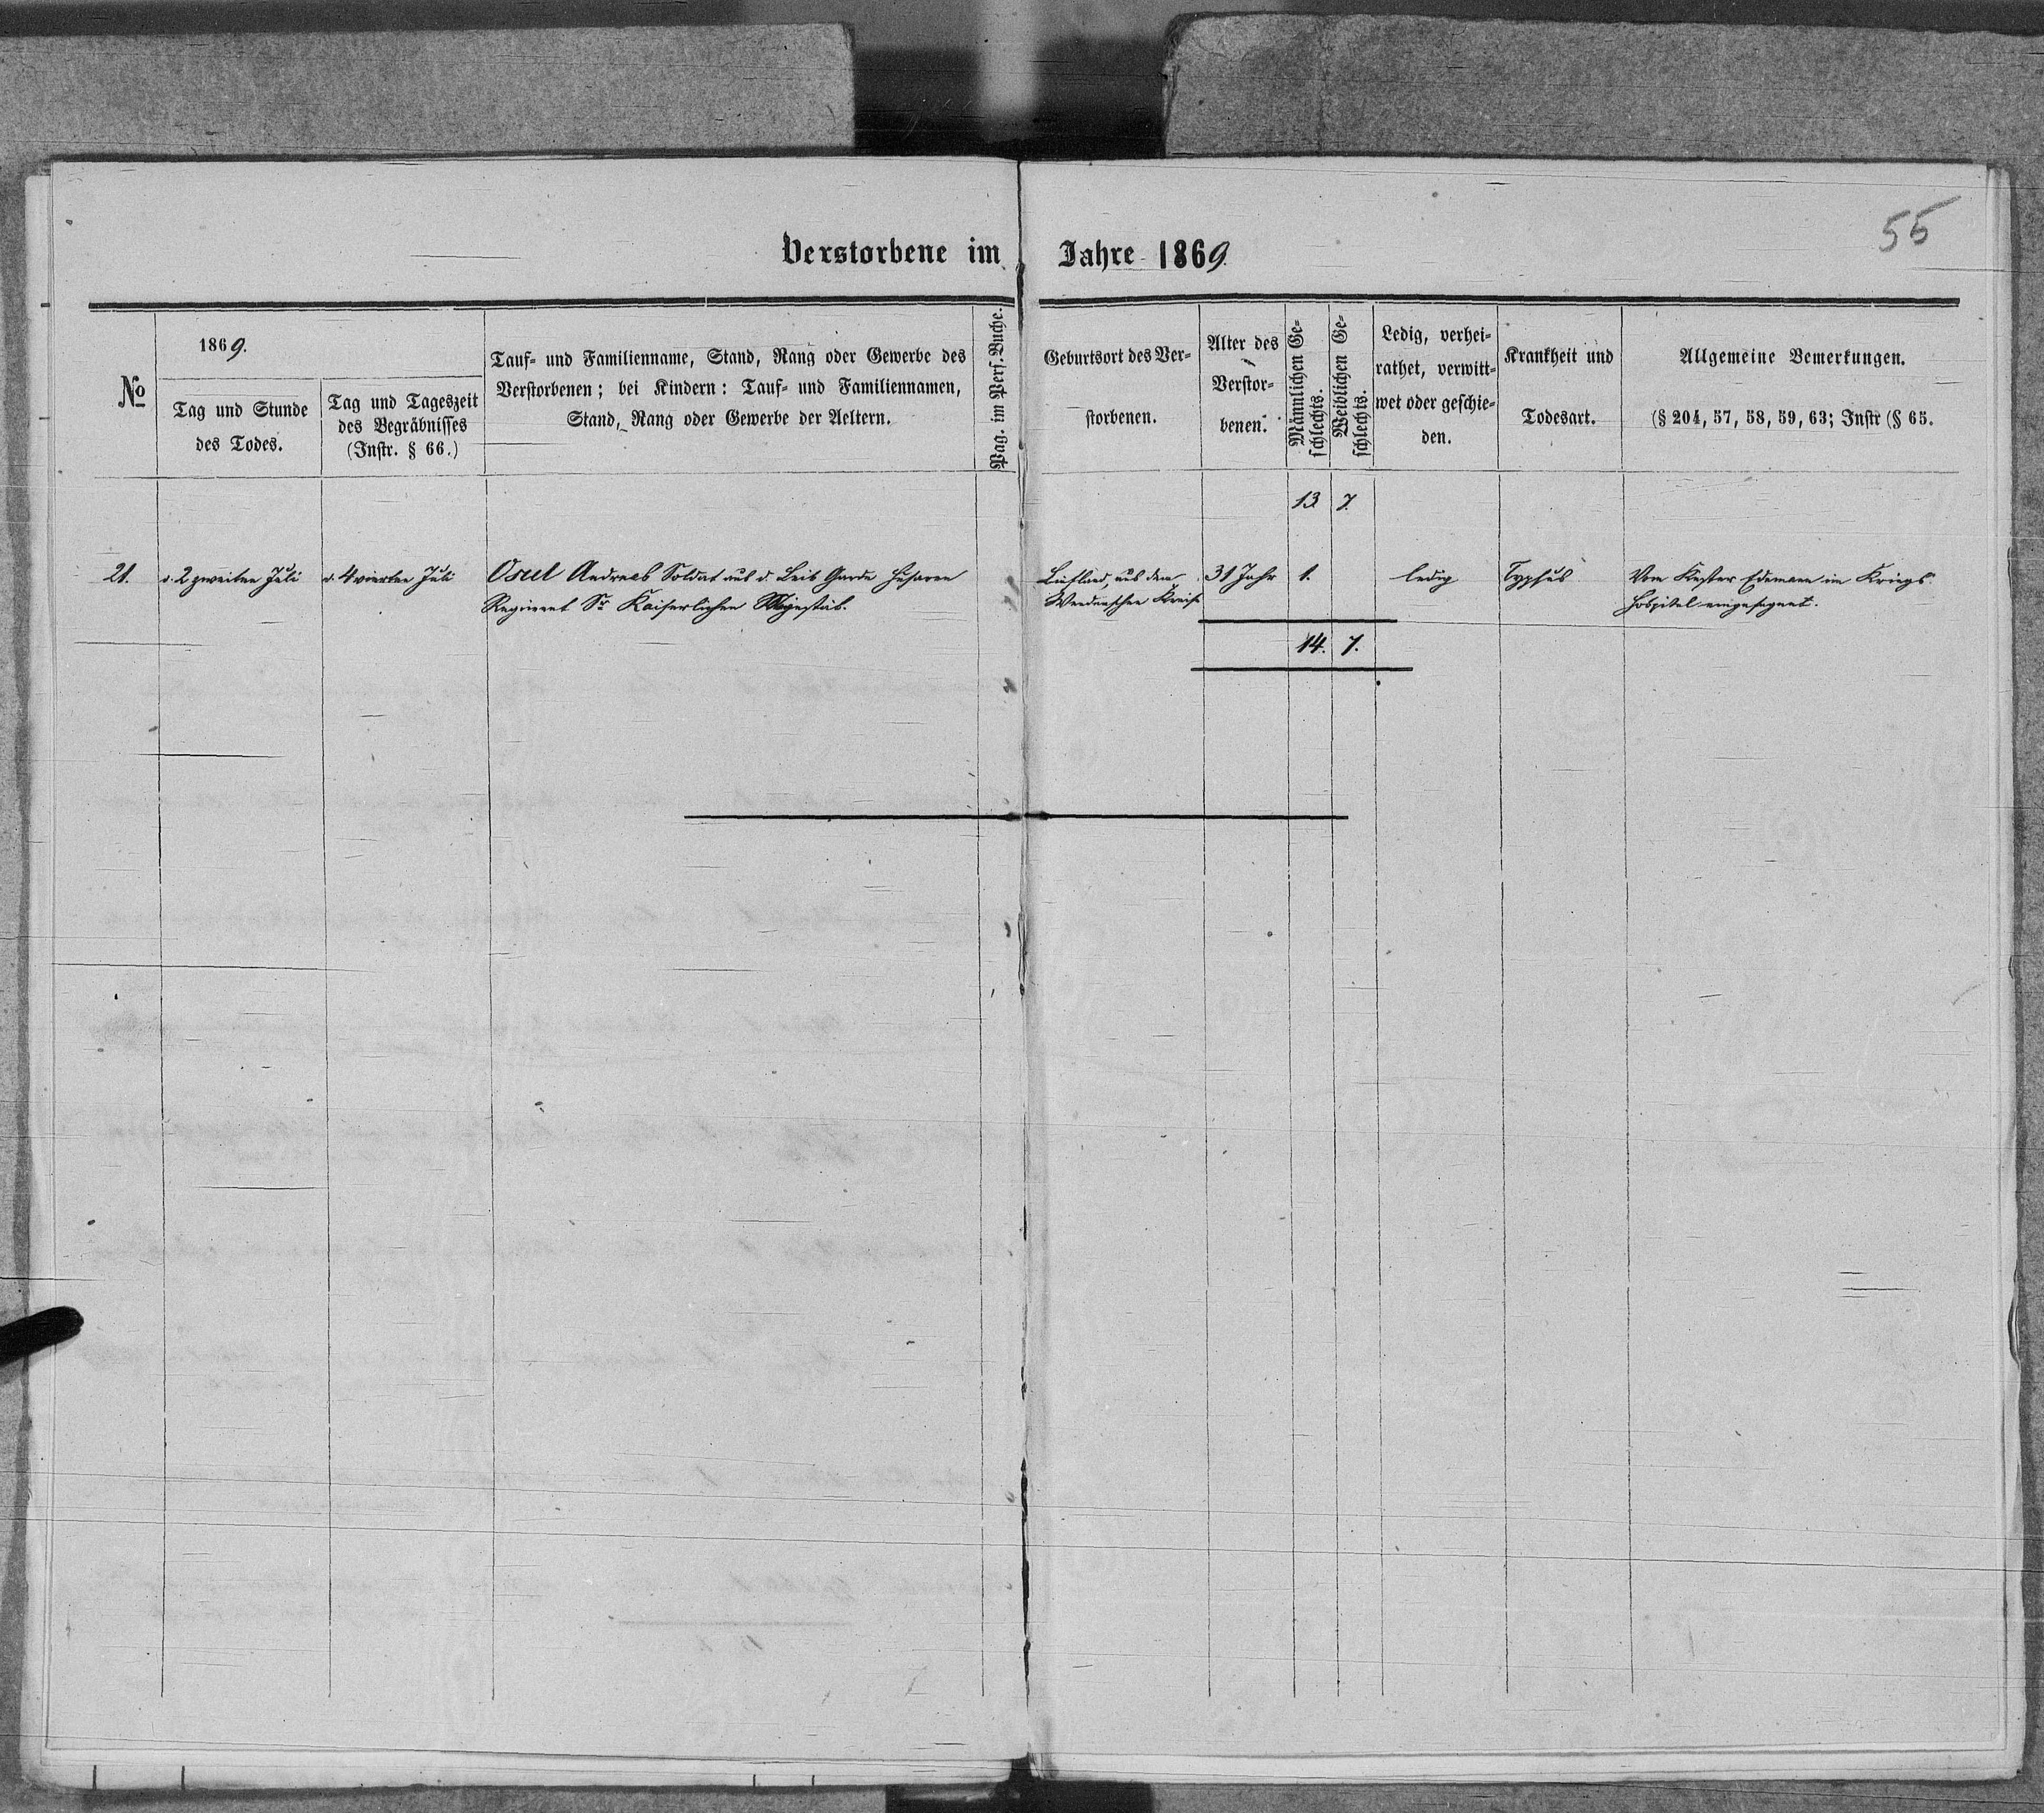 55
Verstorbene im Jahre 1869.
№
1869.
Tag und Stunde
des Todes.
Tag und Tageszeit
des Begräbnisses
(Instr. § 66.)
Tauf- und Familienname, Stand, Rang oder Gewerbe des
Verstorbenen; bei Kindern: Tauf- und Familiennamen,
Stand, Rang oder Gewerbe der Aeltern.
Pag. im Pers. Buche.
Geburtsort des Ver-
storbenen.
Alter des
Verstor-
benen.
Männlichen Ge-
schlechts.
Weiblichen Ge-
schlechts.
Ledig, verhei-
rathet, verwitt-
wet oder geschie-
den.
Krankheit und
Todesart.
Allgemeine Bemerkungen.
(§ 204, 57, 58, 59, 63; Instr (§ 65.
13 7.
21. d. 2 zweiten Juli d. 4 vierten Juli Osul Andreas Soldat aus d. Leib Garde Husaren Liefland aus dem 31 Jahr 1. ledig Typhus Vom Küster Edemann im Kriegs-
Regiment Sr Kaiserlichen Majestät. Wendenschen Kreise Hospital eingesegnet.
14. 7.